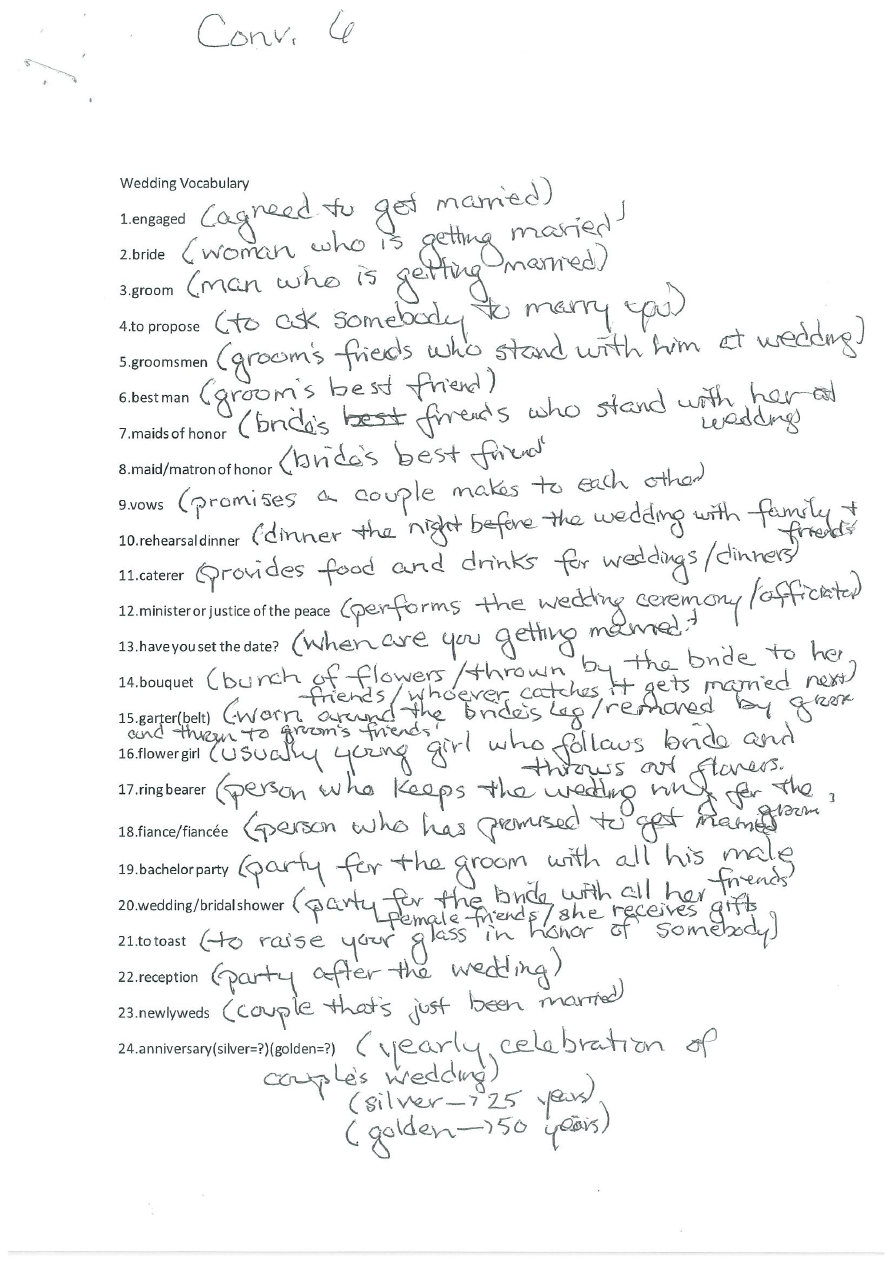 Conv. 6
Wedding Vocabulary
1.engaged (agreed to get married)
2.bride (woman who is getting maried)
3.groom (man who is getting married)
4.to propose (to ask somebody to marry you)
5.groomsmen (groom's frieds who stand with him at wedding)
6.best man (groom's best friend)
7.maids of honor (bride's best friends who stand with her at
wedding)
8.maid/matron of honor (bride's best friend)
9.vows (promises a couple makes to each other)
10.rehearsal dinner (dinner the night before the wedding with family +
friends)
11.caterer (provides food and drinks for weddings/dinners)
12.minister or justice of the peace (performs the wedding ceremony/officiates)
13.have you set the date? (when are you getting married?)
14.bouquet (bunch of flowers/thrown by the bride to her
friends/whoever catches it gets married next)
15.garter(belt) (worn around the bride's leg/removed by groom
and thrown to groom's friends)
16.flower girl (usually young girl who follows bride and
throws out flowers.
17.ring bearer (person who keeps the wedding ring for the
groom)
18.fiance/fiancée (person who has promised to get married)
19.bachelor party (party for the groom with all his male
friends)
20.wedding/bridal shower (party for the bride with all her
female friends/she receives gifts
21.to toast (to raise your glass in honor of somebody)
22.reception (party after the wedding)
23.newlyweds (couple that's just been married)
24.anniversary(silver=?)(golden=?) (yearly celebration of
couple's wedding)
(silver→25 years)
(golden→50 years)